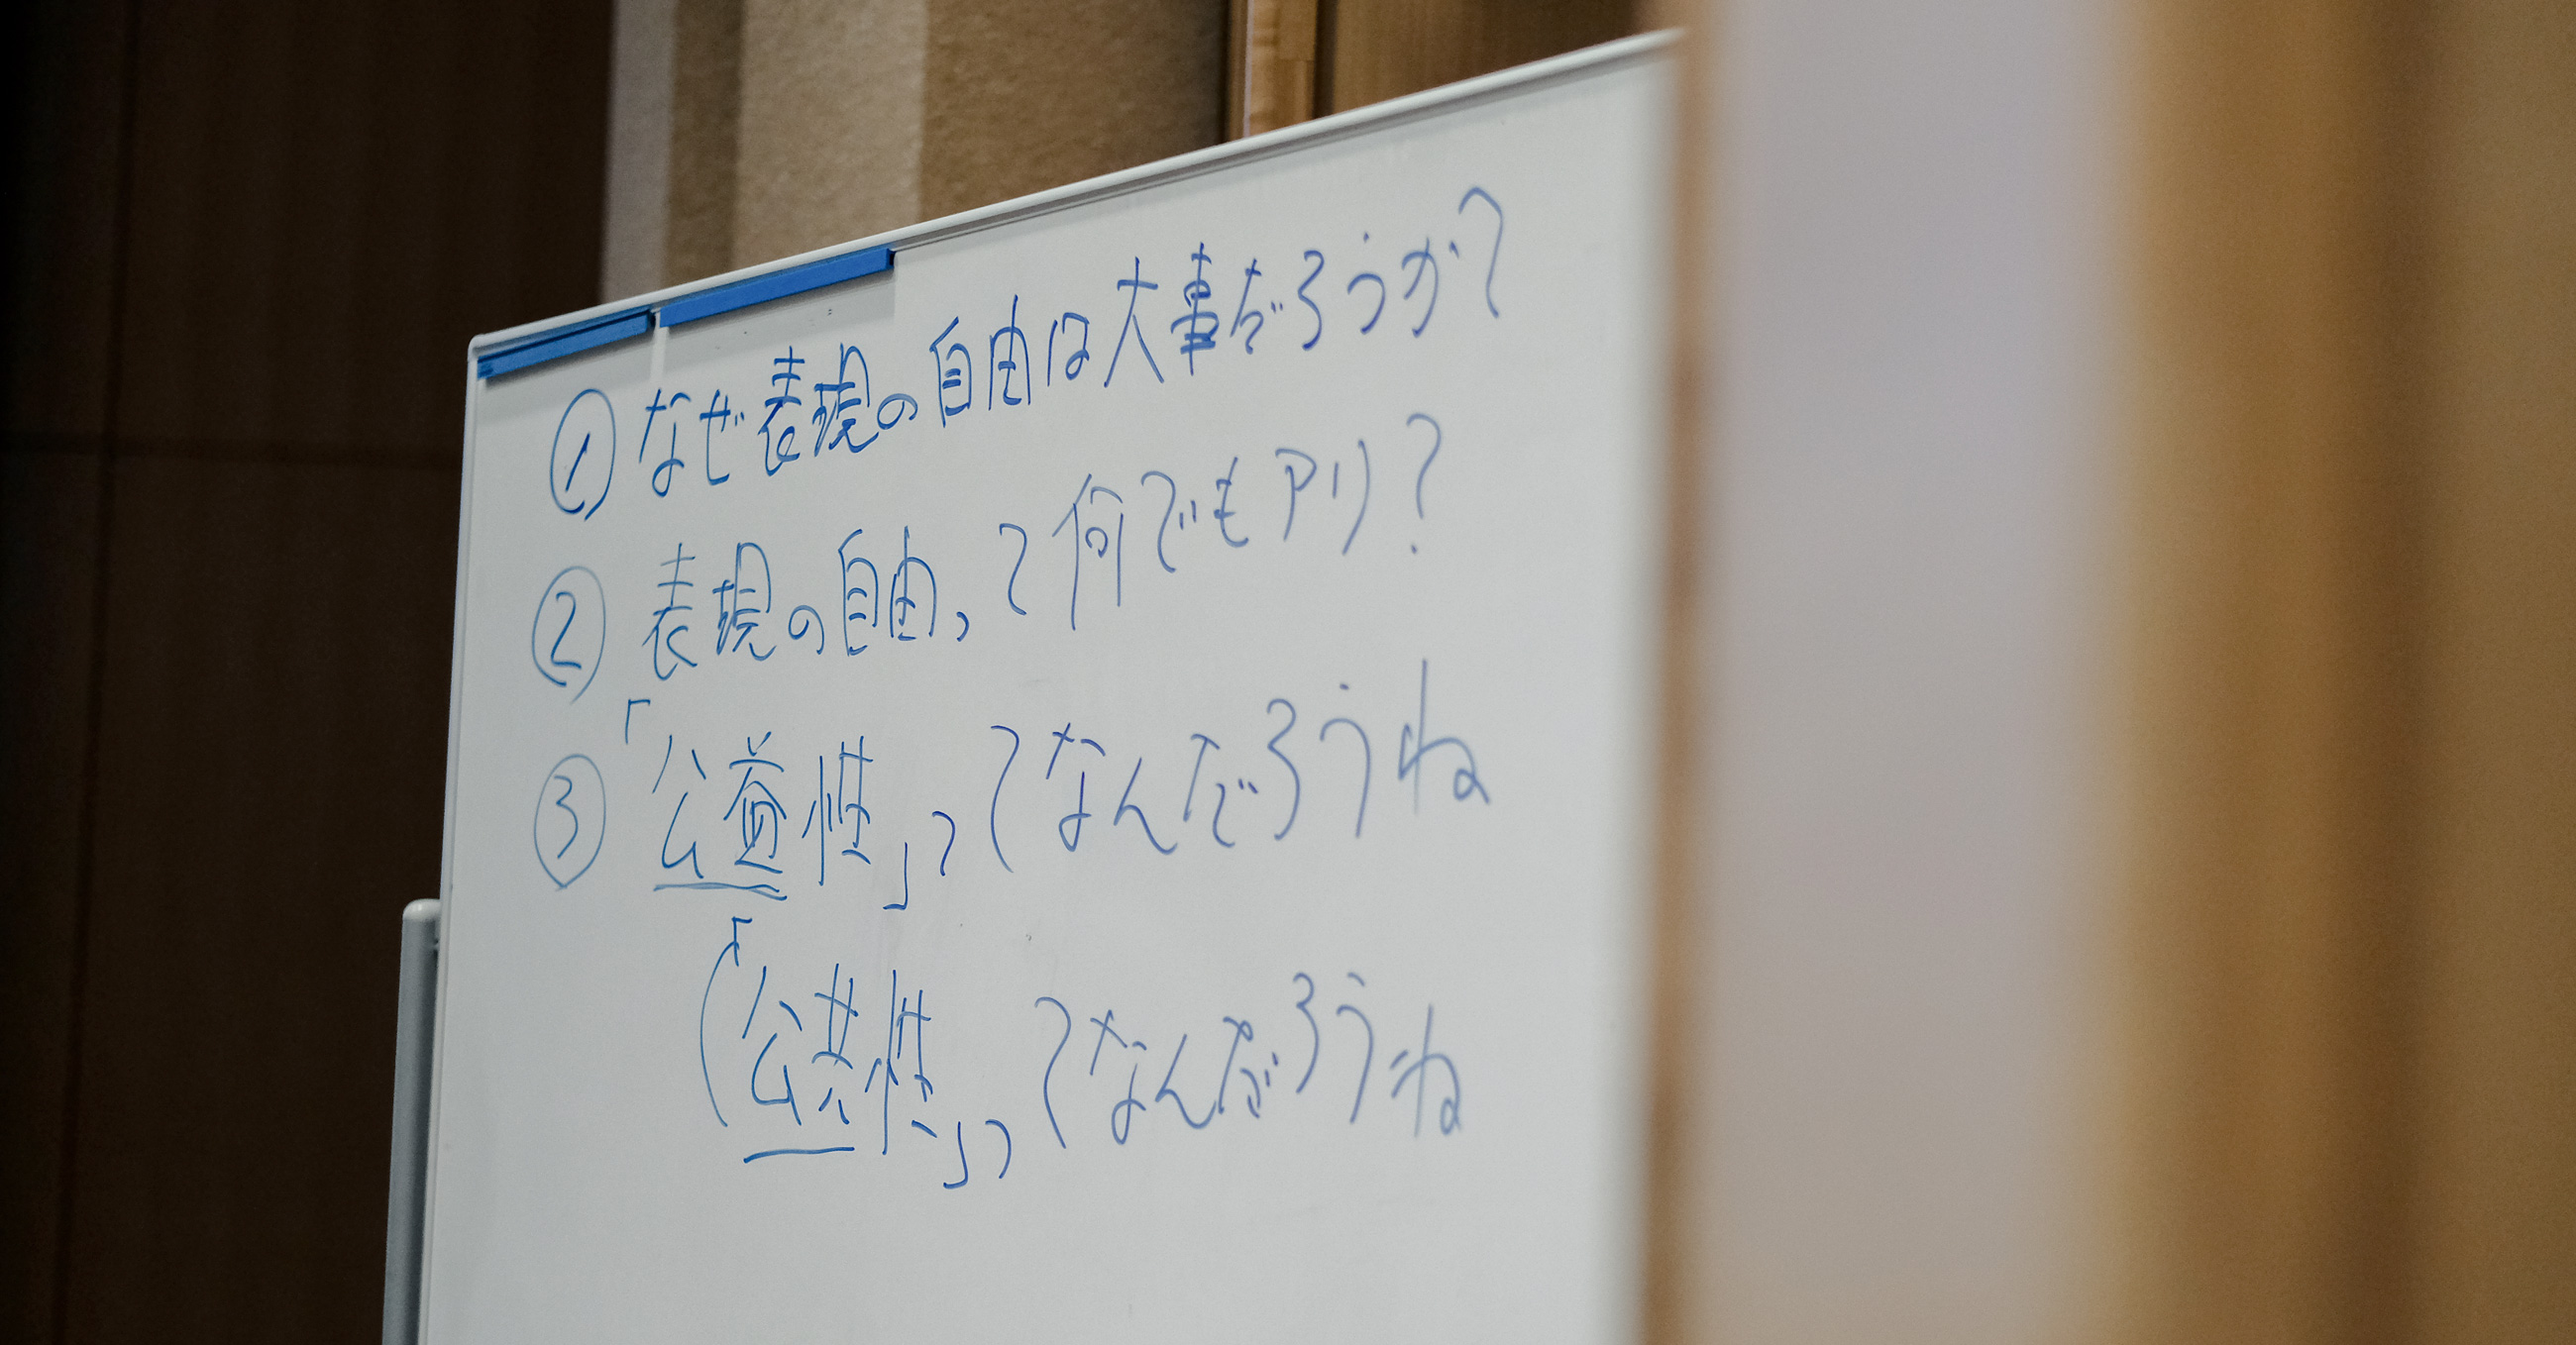 ① なぜ表現の自由は大事だろうか?
② 表現の自由って何でもアリ?
③ 「公益性」ってなんだろうね
(「公共性」ってなんだろうね